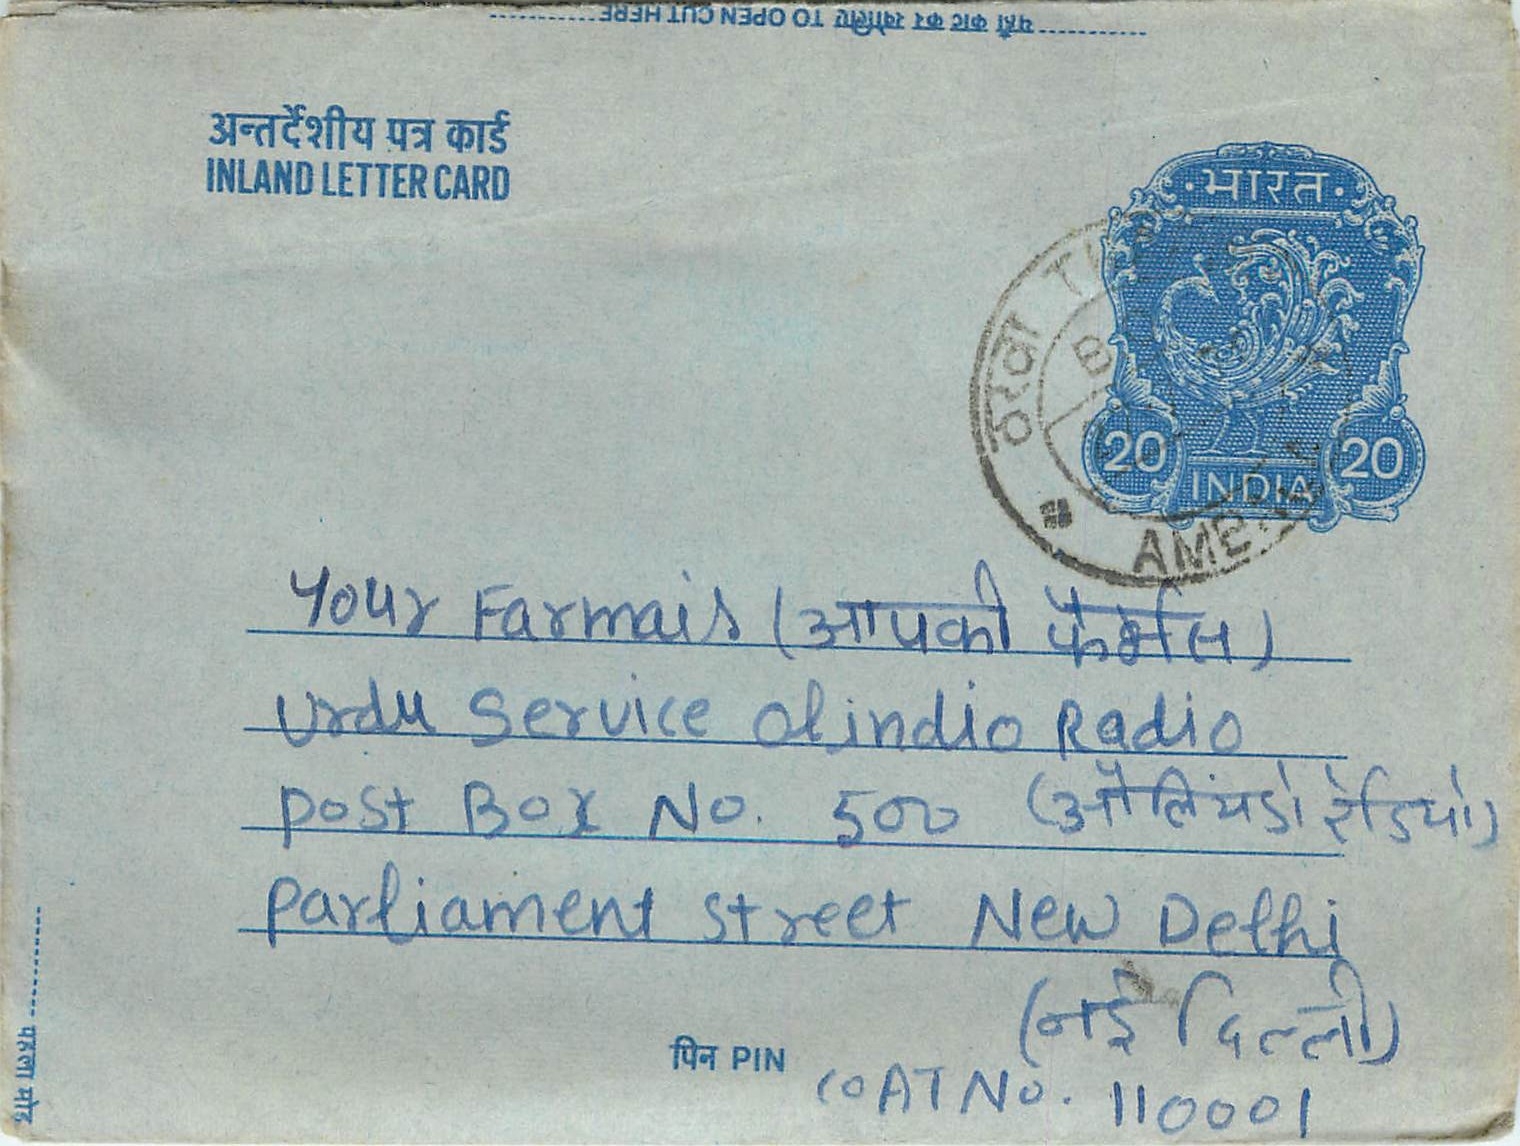 यहाँ काट कर खोलिए TO OPEN CUT HERE
अन्तर्देशीय पत्र कार्ड
INLAND LETTER CARD
भारत
20 20
INDIA
ठरवा
Your Farmais (आपकी फैर्मस)
Urdu Service Olindio Radio
Post Box No. 500 (औलियंडो रेडियो)
Parliament street New Delhi
(नई दिल्ली)
पिन PIN
COAT No. 110001
पहला मोड़